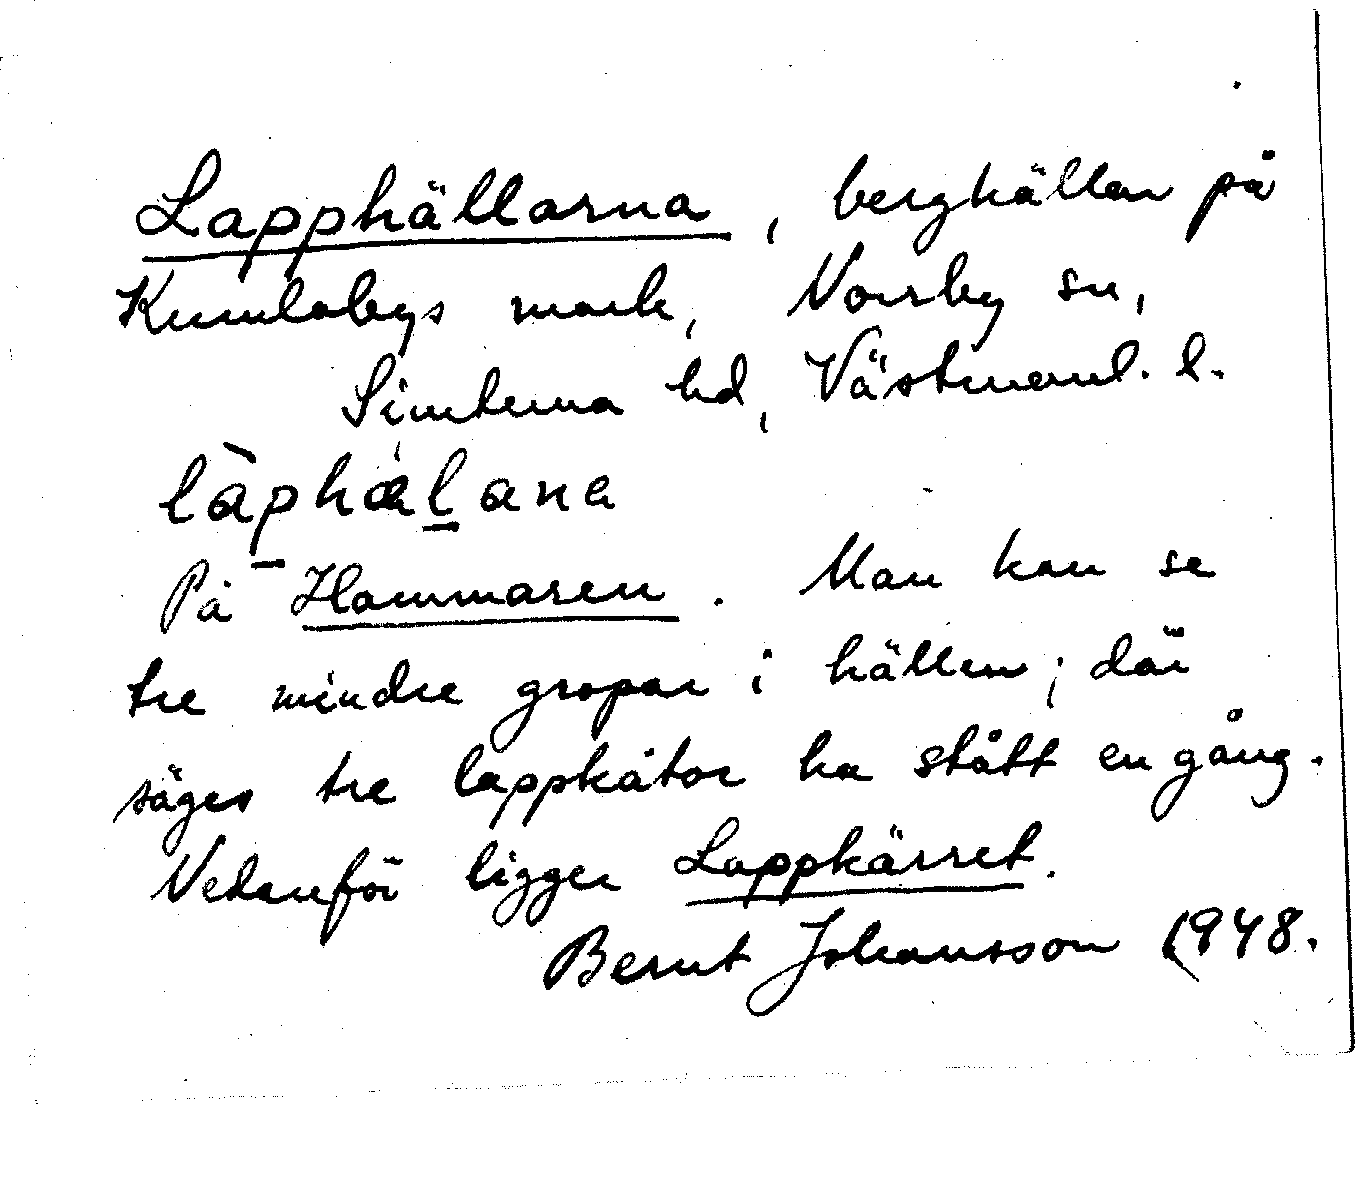 Lapphällarna, berghällar på
Kumlabys mark, Norrby sn,
Simtuna hd, Västmanl. l.
làphæl̲ana
På Hammaren. Man kan se
tre mindre gropar i hällen; där
säges tre lappkåtor ha stått en gång.
Nedanför ligger Lappkärret.
Bernt Johansson 1948.